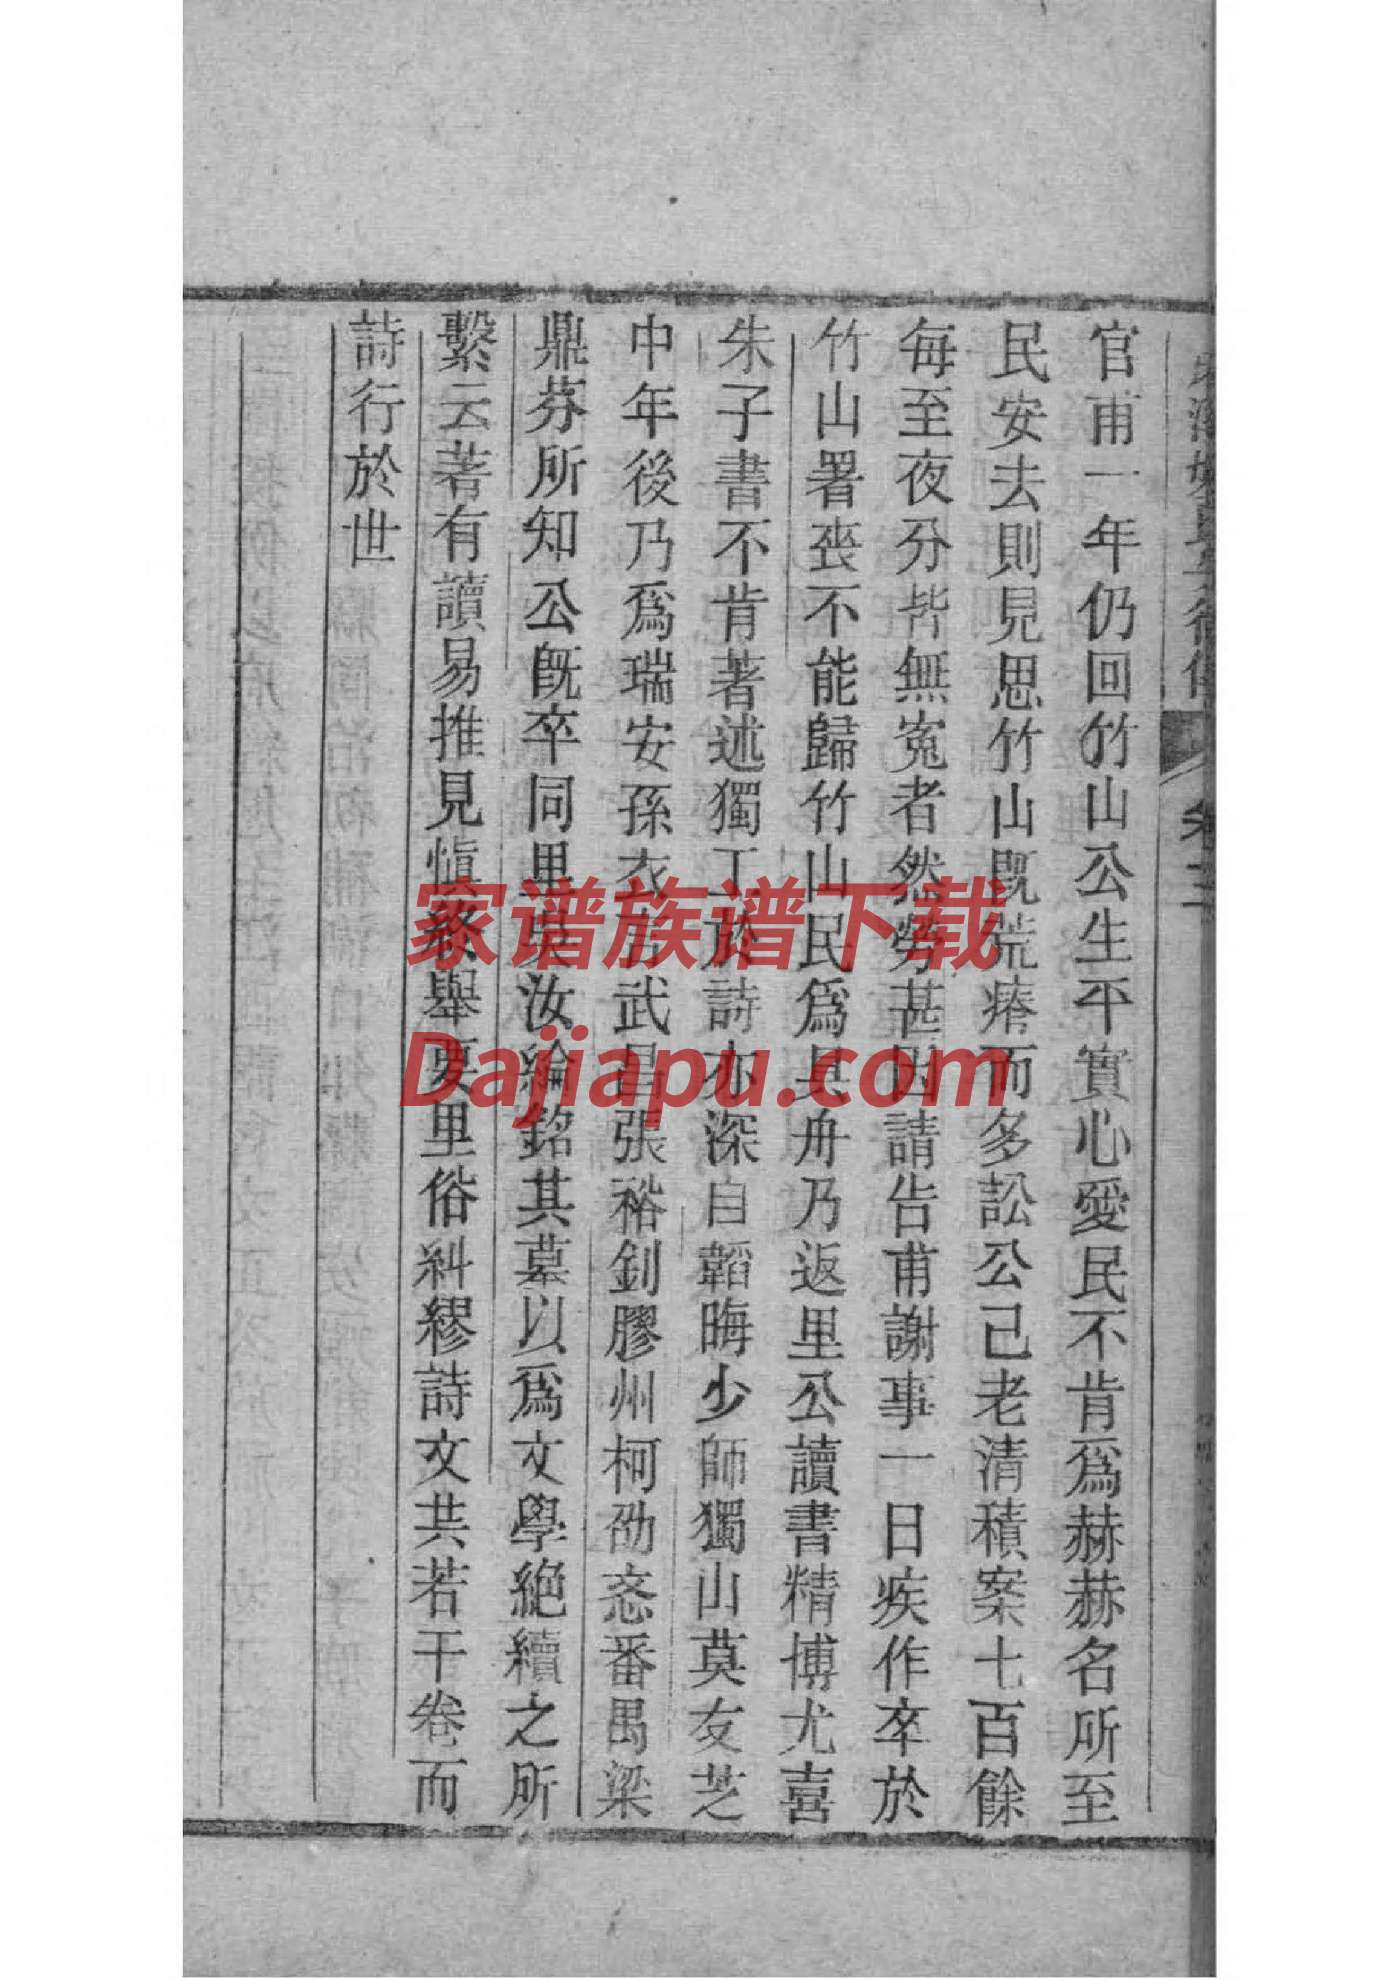 官甫一年仍回竹山公生平實心愛民不肯爲赫赫名所至
民安去則見思竹山既荒瘠而多訟公已老清積案七百餘
每至夜分皆無寃者然勞甚因請告甫謝事一日疾作卒於
竹山署喪不能歸竹山民爲具舟乃返里公讀書精博尤喜
朱子書不肯著述獨工於詩亦深自韜晦少師獨山莫友芝
中年後乃爲瑞安孫衣言武昌張裕釗膠州柯劭忞番禺梁
鼎芬所知公既卒同里吳汝綸銘其墓以爲文學絶續之所
繫云著有讀易推見愼終舉要里俗糾繆詩文共若干卷而
詩行於世
卷二
家谱族谱下载
Dajiapu.com